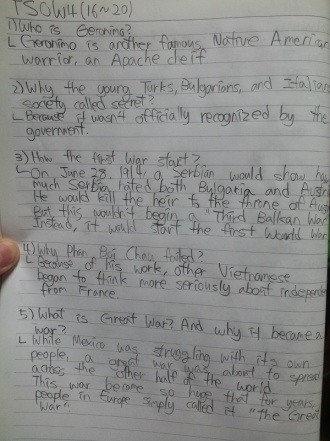 TSOW4 (16~20)
1) Who is Geronimo?
L Geronimo is another famous Native American
warrior, an Apache cheif
2) Why the young Turks, Bulgarians, and Italian
society called secret?
L Because it wasn4 officially recognized by the
government.
3) How the first war start?
L On June 28, 1914, a Serbian would show how
much Serbia hated both Bulgaria and Austria
He would kill the heir to the throne of Austria
But this wouldn't begin a "Third Balkan War"
Instead, it would start the first World War
4) Why Phan Boi Chau failed?
L Because of this work, other Vietnamese
began to think more seriously about independence
from France.
5) What is Great War? And why it became a
war?
L While Mexico was struggling with its own
people, a great war was about to spread
across the other half of the world
This war became so huge that for years,
people in Europe simply called it "the Great
War"